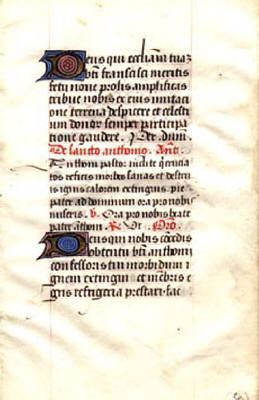 Deus qui eccliam tuaz
bti francisci meritis
fetu noue prolis amplificas
tribue nobis ex eius imitacio
ne terrena despicere et celesti
um donor semper participa
tione gaudere. Per dum.
De sancto anthonio. Ant.
Anthoni pastor inclite q cucia
tos reficis morbos sanas et destru
is ignis calorem extinguis pie
pater ad dominum ora pro nobis
miseris. v. Ora pro nobis beate
pater anthoni. R. Vt Oro.
Deus qui nobis cocedis
obtentu bti anthonii
confessoris tui morbidum i
gnem extingui et mebris e
gris refrigeria prestari fac